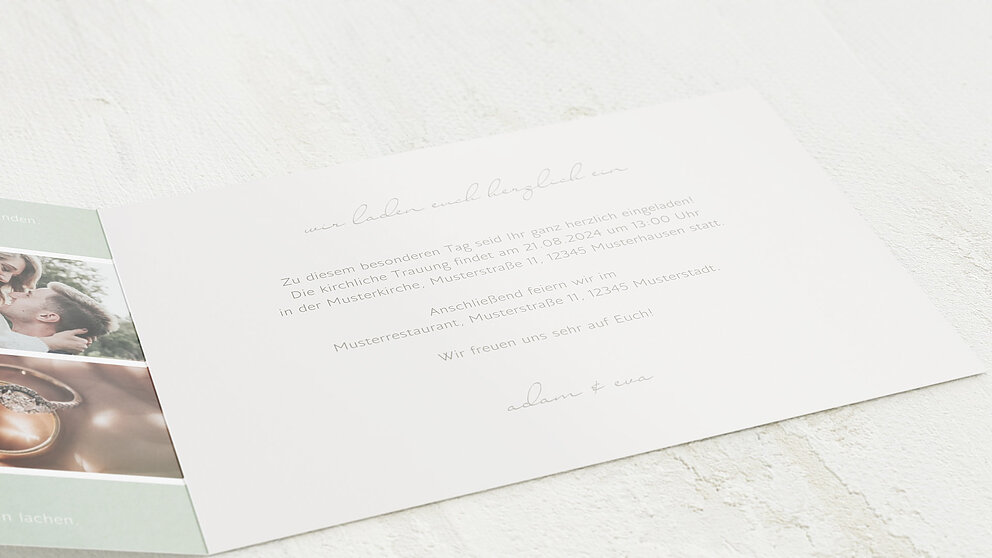 nden
n lachen
wir laden euch herzlich ein
Zu diesem besonderen Tag seid Ihr ganz herzlich eingeladen!
Die kirchliche Trauung findet am 21.08.2024 um 13:00 Uhr
in der Musterkirche, Musterstraße 11, 12345 Musterhausen statt.
Anschließend feiern wir im
Musterrestaurant, Musterstraße 11, 12345 Musterstadt.
Wir freuen uns sehr auf Euch!
adam & eva